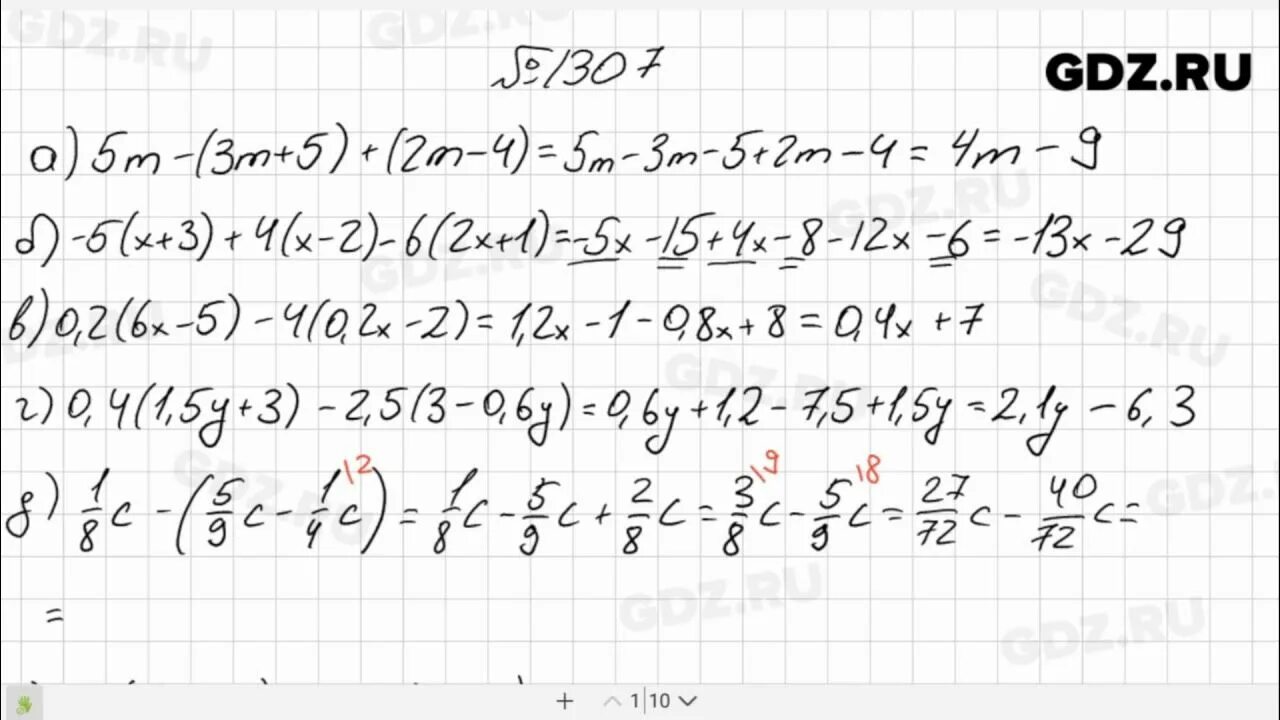 №1307
GDZ.RU
а) 5m - (3m+5) + (2m-4) = 5m - 3m - 5 + 2m - 4 = 4m - 9
б) -5(x+3) + 4(x-2) - 6(2x+1) = -5x - 15 + 4x - 8 - 12x - 6 = -13x - 29
в) 0,2(6x-5) - 4(0,2x-2) = 1,2x - 1 - 0,8x + 8 = 0,4x + 7
г) 0,4(1,5y+3) - 2,5(3-0,6y) = 0,6y + 1,2 - 7,5 + 1,5y = 2,1y - 6,3
д) 1/8 c - (5/9 c - 1/4 c) \2 = 1/8 c - 5/9 c + 2/8 c = 3/8 \9 c - 5/9 \8 c = 27/72 c - 40/72 c =
=
1 10